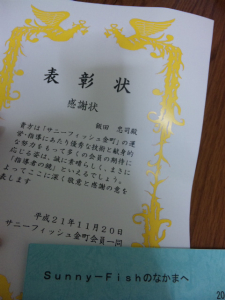 表彰状
感謝状
飯田 忠司殿
貴方は「サニーフィッシュ金町」の運
営・指導にあたり優秀な技術と献身的
な努力をもって多くの会員の期待に
応じる姿は、誠に素晴らしく、まさに
「指導者の鏡」といえるでしょう。
よってここに深く敬意と感謝の意を
表します
平成21年11月20日
サニーフィッシュ金町会員一同
Sunny－Fishのなかまへ
20